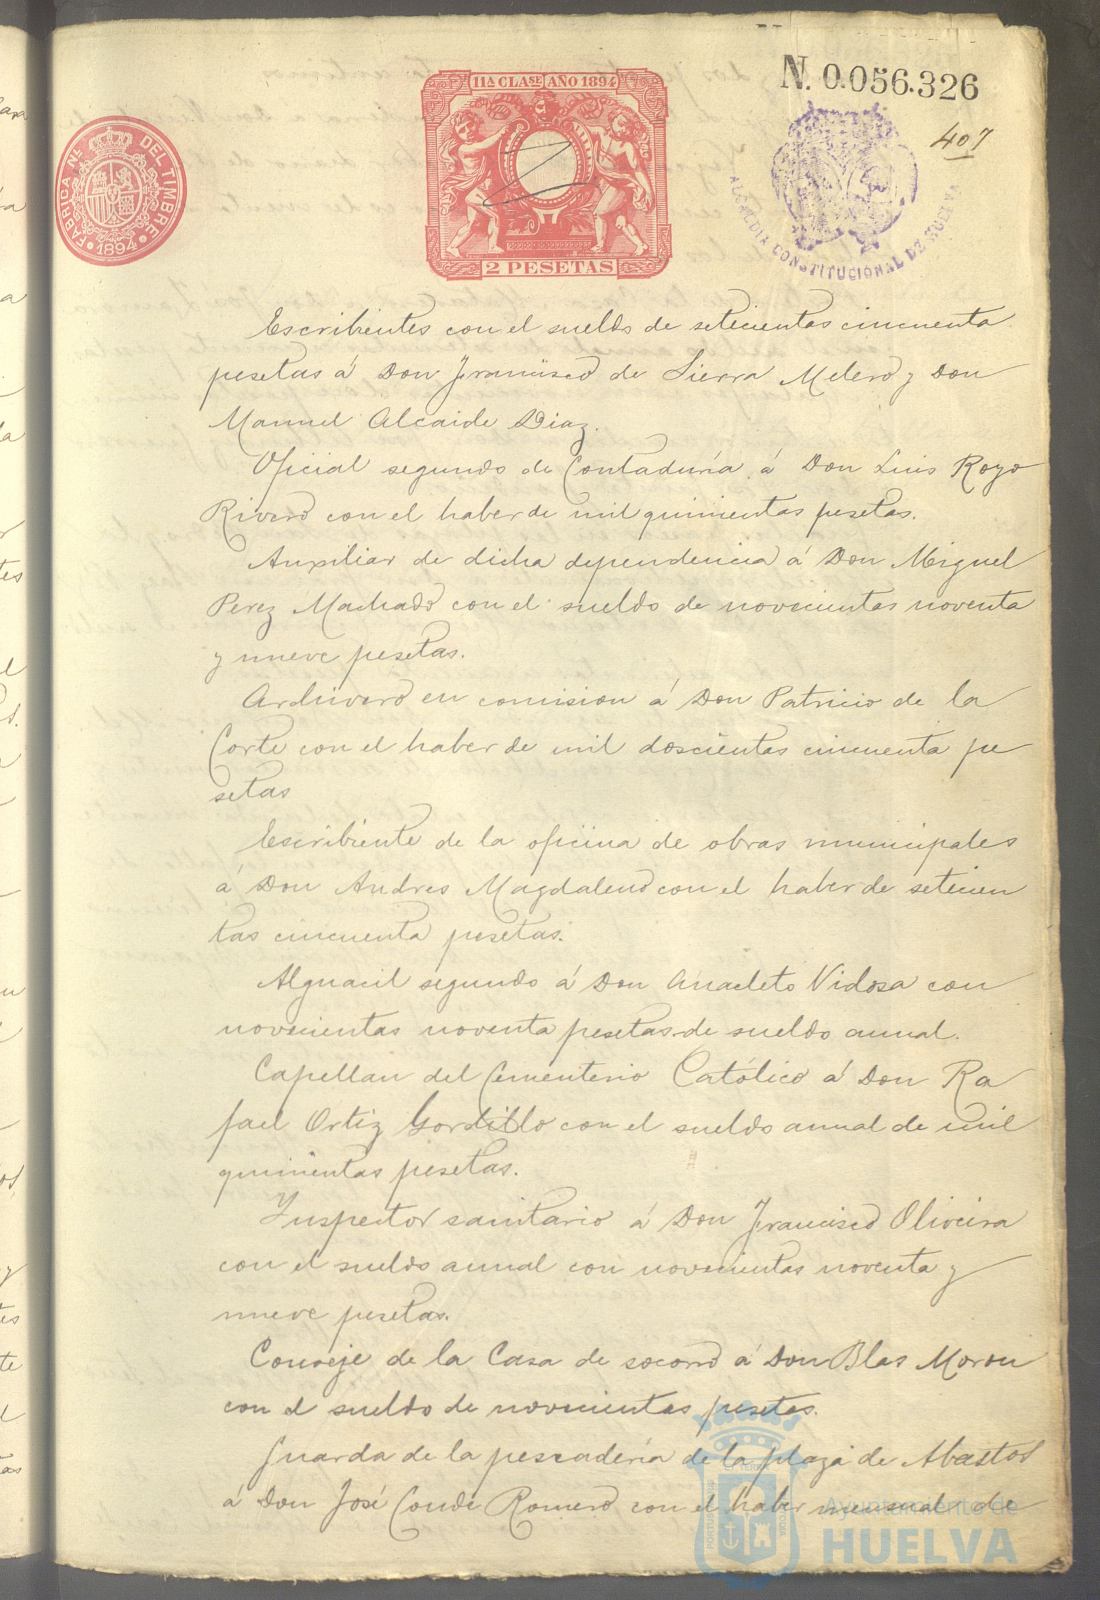 11ª CLASE AÑO 1894
2 PESETAS
N. 0.056.326
407
FABRICA NAL DEL TIMBRE
1894
ALCALDIA CONSTITUCIONAL DE HUELVA
Escribientes con el sueldo de setecientas cincuenta
pesetas á Don Francisco de Sierra Melero y Don
Manuel Alcaide Diaz.
Oficial segundo de Contaduría á Don Luis Royo
Rivero con el haber de mil quinientas pesetas.
Auxiliar de dicha dependencia á Don Miguel
Perez Machado con el sueldo de novecientas noventa
y nueve pesetas.
Archivero en comision á Don Patricio de la
Corte con el haber de mil doscientas cincuenta pe
setas
Escribiente de la oficina de obras municipales
á Don Andres Magdaleno con el haber de setecien
tas cincuenta pesetas.
Alguacil segundo á Don Anacleto Vidosa con
novecientas noventa pesetas de sueldo annal.
Capellan del Cementerio Católico á Don Ra
fael Ortiz Gordillo con el sueldo annal de mil
quinientas pesetas.
Inspector sanitario á Don Francisco Oliveira
con el sueldo annal con novecientas noventa y
nueve pesetas.
Conseje de la Casa de socorro á Don Blas Moron
con el sueldo de novecientas pesetas.
Guarda de la pescadería de la plaza de Abastos
á Don José Conde Romero con el haber mensual de
Ayuntamiento de
HUELVA